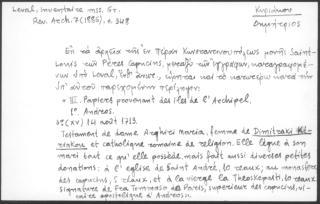 Laval, Inventaire mss. Gr.
Rev. Arch. 7 (1886), σ. 348
Κυριάκου
Δημήτριος
Ἐν τῷ ἀρχείῳ τῆς ἐν Πέραν Κωνσταντινουπόλεως μονῆς Saint-
Louis τῶν Pères Capucins, μεταξὺ τῶν ἐγγράφων,
ὑπὸ Laval, ἔνθ' ἀνωτ., καὶ τὸ κατωτέρω κατὰ τὴν
ὑπ' αὐτοῦ παρεχομένην περίληψιν:
" III. Papiers provenant des îles de l'Archipel.
1º. Andros.
3º (XV) 14 août 1713.
Testament de dame Arghiri Maria, femme de Dimitraki
et catholique romaine de religion. Elle lègue à son
mari tout ce qu'elle possède, mais fait aussi diverses petites
donations: à l'église de Saint André, 10 réaux; au monastère
des capucins, 5 réaux, et à la vierge la Théoskepasti, 10 réaux
Signature de Fra Tommaso de Paris, supérieur des capucins, vi-
caire apostolique d'Andros".